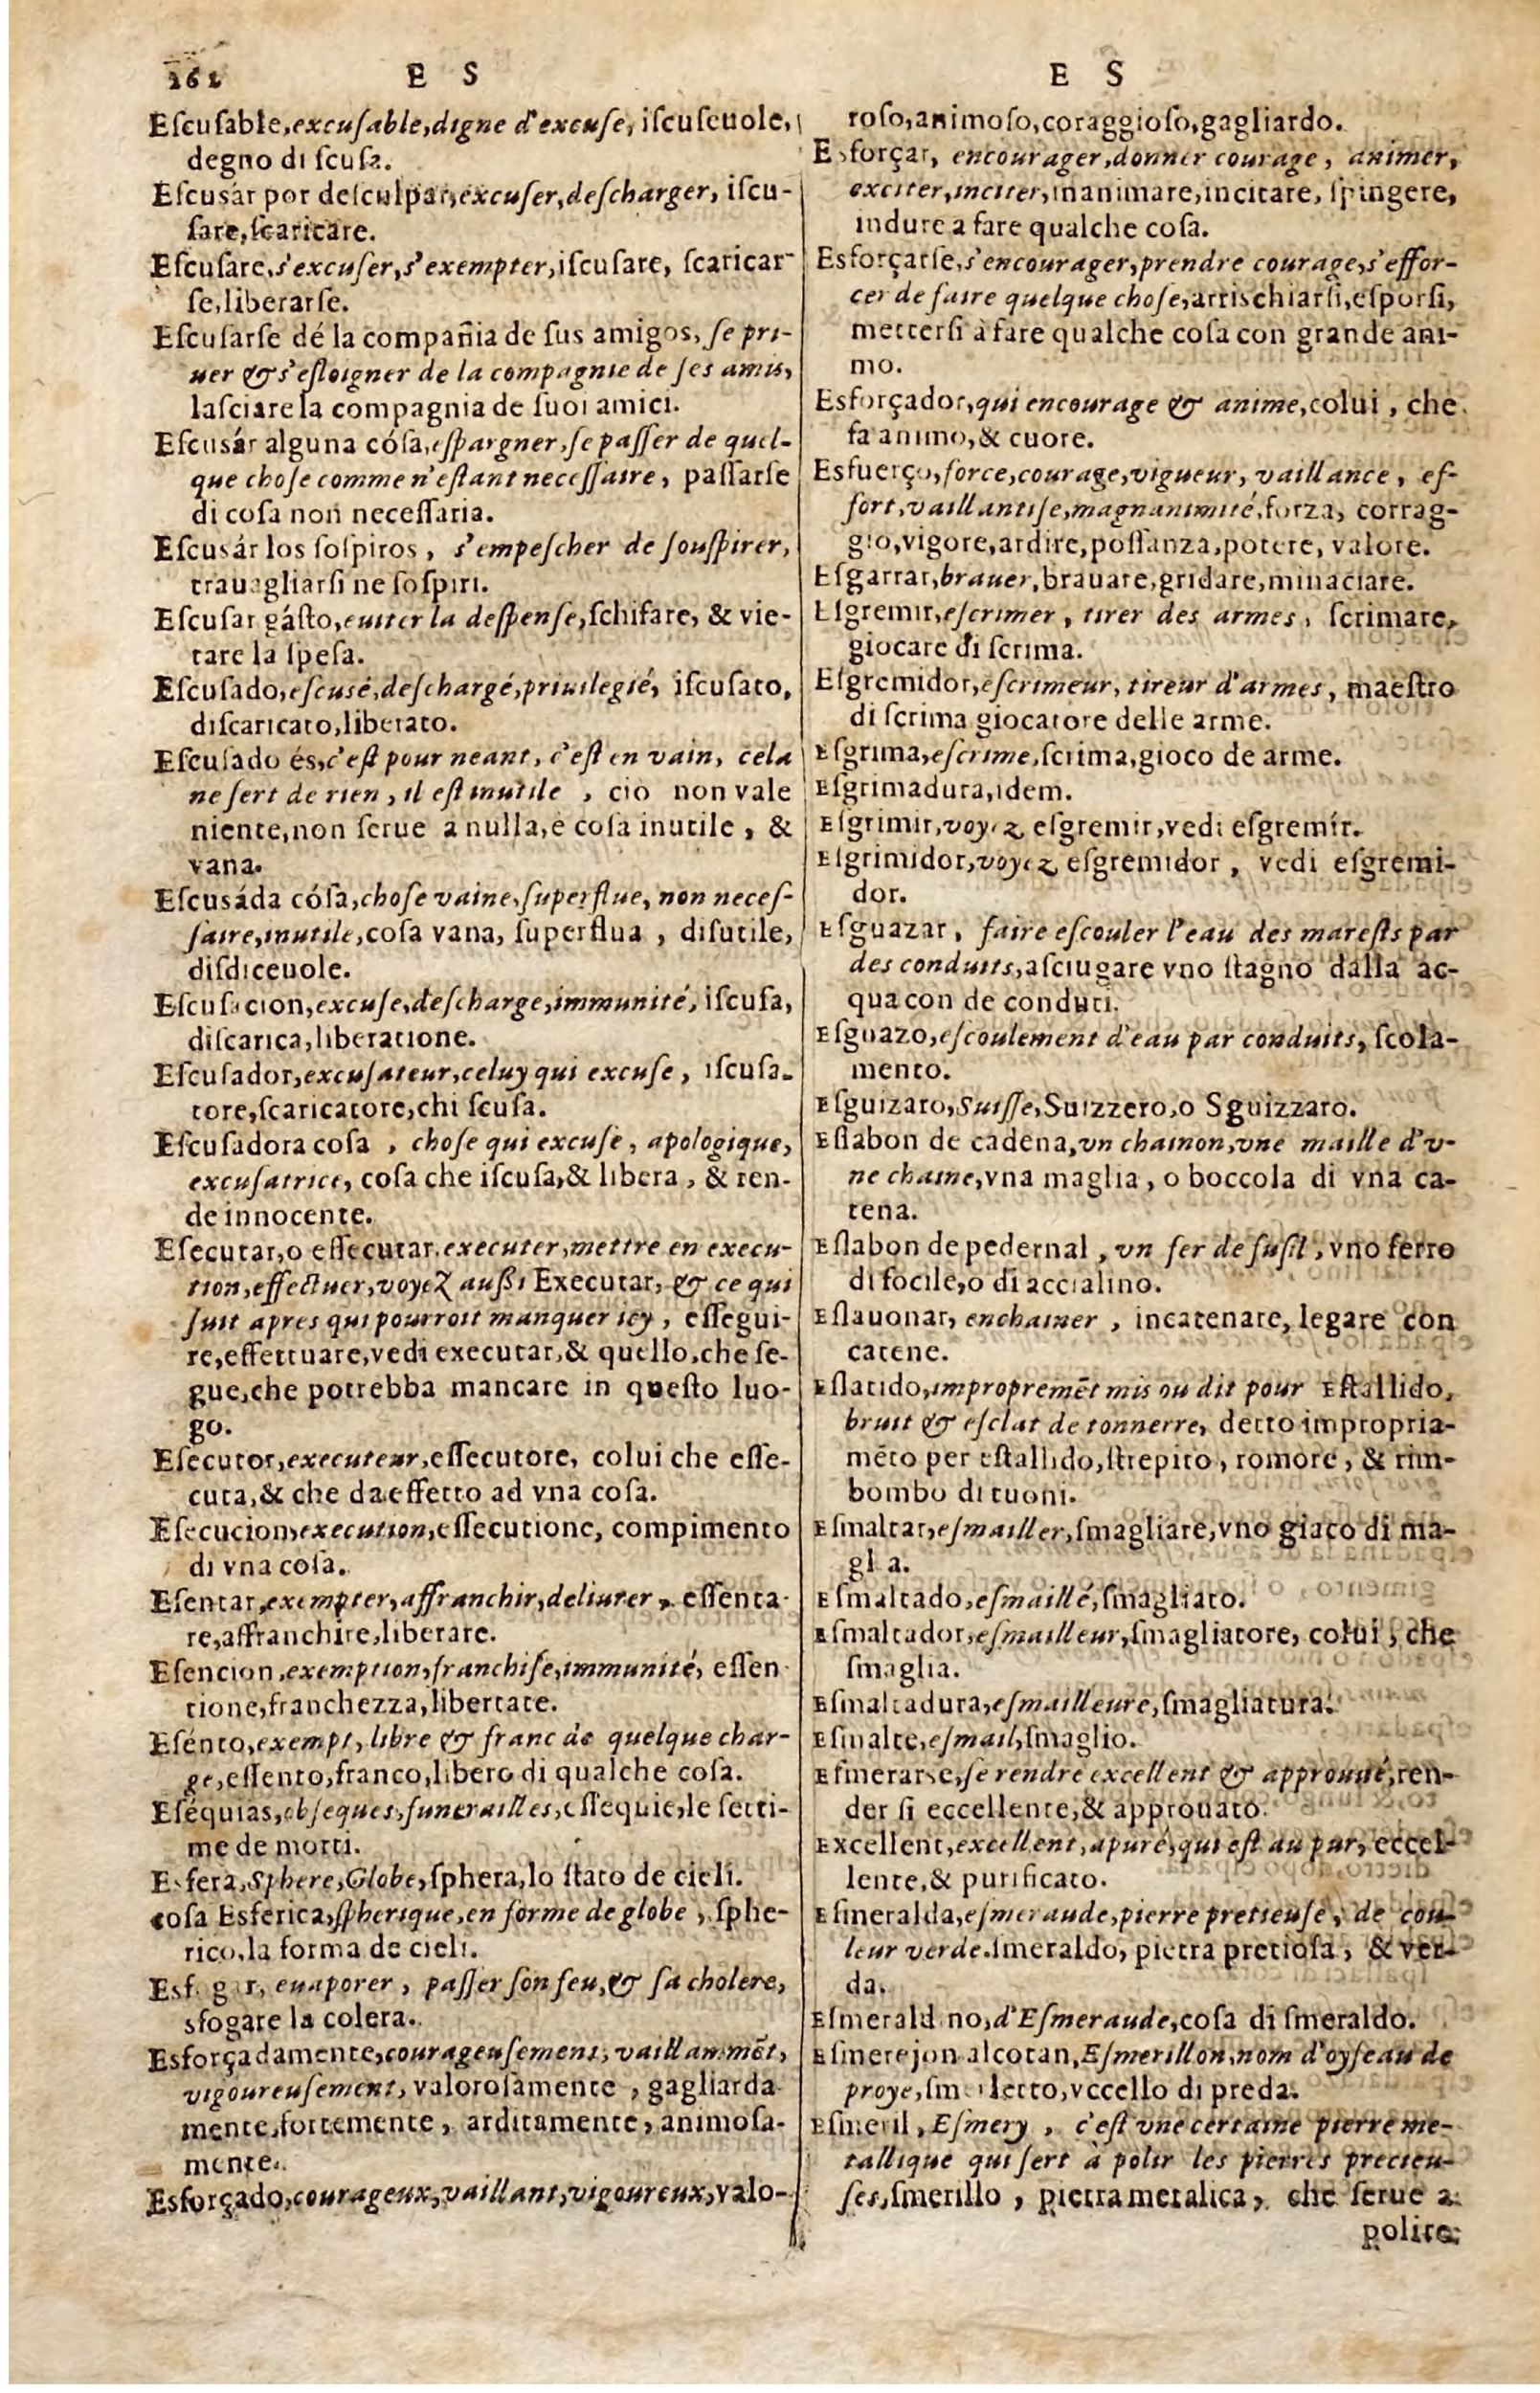 262 E S
Eſcuſable,excuſable,digne d'excuſe, iſcuſeuole,
degno di ſcuſa.
Eſcusár por deſculpar,excuſer,deſcharger, iſcu-
ſare,ſcaricare.
Eſcuſare,s'excuſer,s'exempter,iſcuſare, ſcaricar-
ſe,liberarſe.
Eſcuſarſe dé la compañia de ſus amigos, ſe pri-
uer & s'eſloigner de la compagnie de ſes amis,
laſciare la compagnia de ſuoi amici.
Eſcusár alguna cóſa,eſpargner,ſe paſſer de quel-
que choſe comme n'eſtant neceſſaire, paſſarſe
di coſa non neceſſaria.
Eſcusár los ſoſpiros, s'empeſcher de ſouſpirer,
trauagliarſi ne ſoſpiri.
Eſcuſar gáſto,euiter la deſpenſe,ſchifare, & vie-
tare la ſpeſa.
Eſcuſado,eſcusé,deſchargé,priuilegié, iſcuſato,
diſcaricato,liberato.
Eſcuſado és,c'eſt pour neant, c'eſt en vain, cela
ne ſert de rien, il eſt inutile , cio non vale
niente,non ſerue a nulla,e coſa inutile, &
vana.
Eſcusáda cóſa,choſe vaine,ſuperflue, non neceſ-
ſaire,inutile,coſa vana, ſuperflua , diſutile,
diſdiceuole.
Eſcuſacion,excuſe,deſcharge,immunité, iſcuſa,
diſcarica,liberatione.
Eſcuſador,excuſateur,celuy qui excuſe, iſcuſa-
tore,ſcaricatore,chi ſcuſa.
Eſcuſadora coſa , choſe qui excuſe, apologique,
excuſatrice, coſa che iſcuſa,& libera, & ren-
de innocente.
Eſecutar,o eſſecutar,executer,mettre en execu-
tion,effectuer,voyez auſſi Executar, & ce qui
ſuit apres qui pourroit manquer icy, eſſegui-
re,effettuare,vedi executar,& quello,che ſe-
gue,che potrebba mancare in queſto luo-
go.
Eſecutor,executeur,eſſecutore, colui che eſſe-
cuta,& che da effetto ad vna coſa.
Eſecucion,execution,eſſecutione, compimento
di vna coſa.
Eſentar,exempter,affranchir,deliurer, eſſenta-
re,affranchire,liberare.
Eſencion,exemption,franchiſe,immunité, eſſen-
tione,franchezza,libertate.
Eſénto,exempt,libre & franc de quelque char-
ge,eſſento,franco,libero di qualche coſa.
Eſéquias,obſeques,funerailles,eſſequie,le ſetti-
me de morti.
Esfera,Sphere,Globe,ſphera,lo ſtato de cieli.
coſa Esferica,ſpherique,en forme de globe, ſphe-
rico,la forma de cieli.
Esfogar, euaporer, paſſer ſon feu,& ſa cholere,
sfogare la colera.
Esforçadamente,courageuſement, vaillammēt,
vigoureuſement, valoroſamente , gagliarda-
mente,fortemente, arditamente, animoſa-
mente.
Esforçado,courageux,vaillant,vigoureux,valo-
E S
roſo,animoſo,coraggioſo,gagliardo.
Esforçar, encourager,donner courage, animer,
exciter,inciter,inanimare,incitare, ſpingere,
indure a fare qualche coſa.
Esforçarſe,s'encourager,prendre courage,s'effor-
cer de faire quelque choſe,arriſchiarſi,eſporſi,
metterſi à fare qualche coſa con grande ani-
mo.
Esforçador,qui encourage & anime,colui , che
fa animo,& cuore.
Esfuerço,force,courage,vigueur, vaillance, ef-
fort,vaillantiſe,magnanimité,forza, corrag-
gio,vigore,ardire,poſſanza,potere, valore.
Eſgarrar,brauer,brauare,gridare,minaciare.
Eſgremir,eſcrimer , tirer des armes, ſcrimare,
giocare di ſcrima.
Eſgremidor,eſcrimeur, tireur d'armes, maeſtro
di ſcrima giocatore delle arme.
Eſgrima,eſcrime,ſcrima,gioco de arme.
Eſgrimadura,idem.
Eſgrimir,voyez eſgremir,vedi eſgremír.
Eſgrimidor,voyez eſgremidor , vedi eſgremi-
dor.
Eſguazar, faire eſcouler l'eau des mareſts par
des conduits,aſciugare vno ſtagno dalla ac-
qua con de conduti.
Eſguazo,eſcoulement d'eau par conduits, ſcola-
mento.
Eſguizaro,Suiſſe,Suizzero,o Sguizzaro.
Eſlabon de cadena,vn chainon,vne maille d'v-
ne chaine,vna maglia, o boccola di vna ca-
tena.
Eſlabon de pedernal , vn fer de fuſil, vno ferro
di focile,o di accialino.
Eſlauonar, enchainer , incatenare, legare con
catene.
Eſlatido,impropremēt mis ou dit pour Eſtallido,
bruit & eſclat de tonnerre, detto impropria-
mēto per eſtallido,ſtrepito, romore, & rim-
bombo di tuoni.
Eſmaltar,eſmailler,ſmagliare,vno giaco di ma-
glia.
Eſmaltado,eſmaillé,ſmagliato.
Eſmaltador,eſmailleur,ſmagliatore, colui, che
ſmaglia.
Eſmaltadura,eſmailleure,ſmagliatura.
Eſmalte,eſmail,ſmaglio.
Eſmerarse,ſe rendre excellent & approuué,ren-
der ſi eccellente,& approuato.
Excellent,excellent,apuré,qui eſt au pur, eccel-
lente,& purificato.
Eſmeralda,eſmeraude,pierre pretieuſe, de cou-
leur verde.ſmeraldo, pietra pretioſa, & ver-
da.
Eſmeraldino,d'Eſmeraude,coſa di ſmeraldo.
Eſmerejon alcotan,Eſmerillon,nom d'oyſeau de
proye, vccello di preda.
Eſmeril, Eſmery , c'eſt vne certaine pierre me-
tallique qui ſert à polir les pierres precieu-
ſes,ſmerillo , pietra metalica, che ſerue a
polire